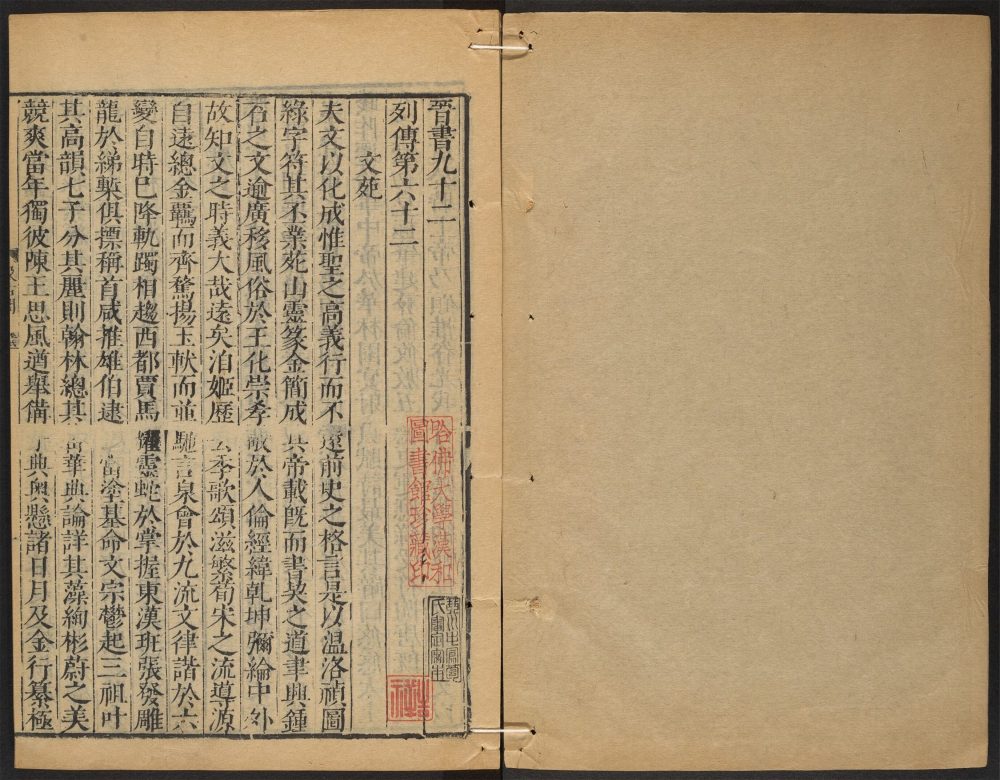 晉書九十二
列傳第六十二
文苑
夫文以化成惟聖之高義行而不遠前史之格言是以溫洛禎圖
綠字符其丕業苑山靈篆金簡成其帝載旣而書契之道聿興鍾
石之文逾廣移風俗於王化崇孝敬於人倫經緯乾坤彌綸中外
故知文之時義大哉遠矣洎姬歷云季歌頌滋繁荀宋之流導源
自遠總金羈而齊騖揚玉軑而並馳言泉會於九流文律諧於六
變自時已降軌躅相趨西都賈馬耀靈蛇於掌握東漢班張發雕
龍於綈槧俱摽稱首咸推雄伯逮乎當塗基命文宗鬱起三祖叶
其高韻七子分其麗則翰林總其菁華典論詳其藻絢彬蔚之美
競爽當年獨彼陳王思風遒舉備乎典奧懸諸日月及金行纂極
哈佛大學漢和
圖書館珍藏印